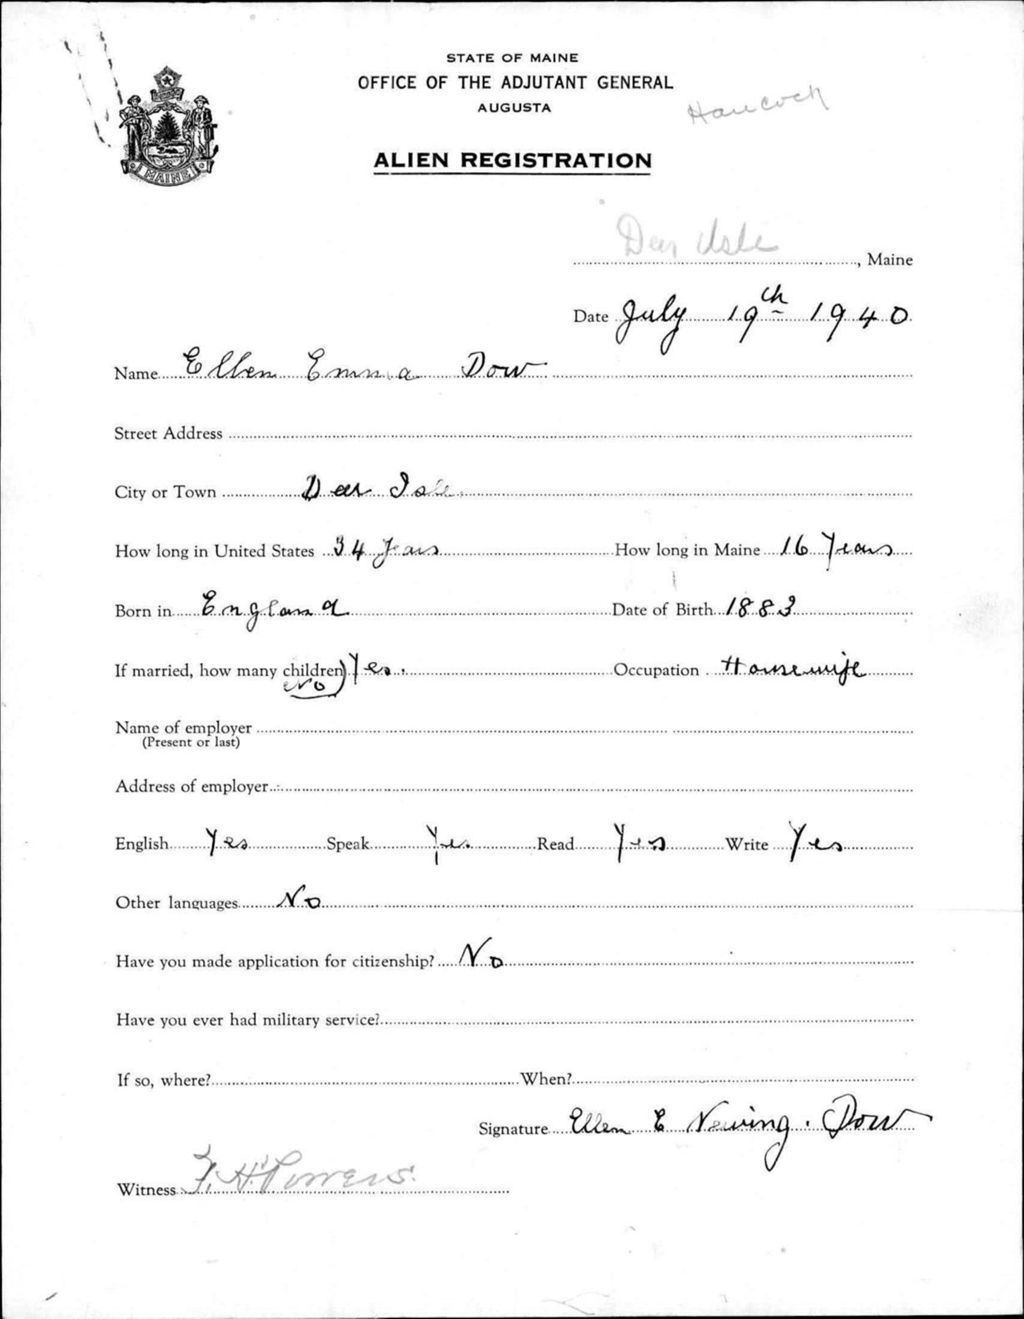 STATE OF MAINE
OFFICE OF THE ADJUTANT GENERAL
AUGUSTA
Hancock
ALIEN REGISTRATION
MAINE
Deer Isle, Maine
Date July 19th 1940
Name Ellen Emma Dow
Street Address
City or Town Deer Isle
How long in United States 34 Years How long in Maine 16 Years
Born in England Date of Birth 1883
If married, how many children) Yes. Occupation Housewife
No
Name of employer
(Present or last)
Address of employer
English Yes Speak Yes Read Yes Write Yes
Other languages No
Have you made application for citizenship? No
Have you ever had military service?
If so, where? When?
Signature Ellen E Newing. Dow
Witness F. H. Powers.